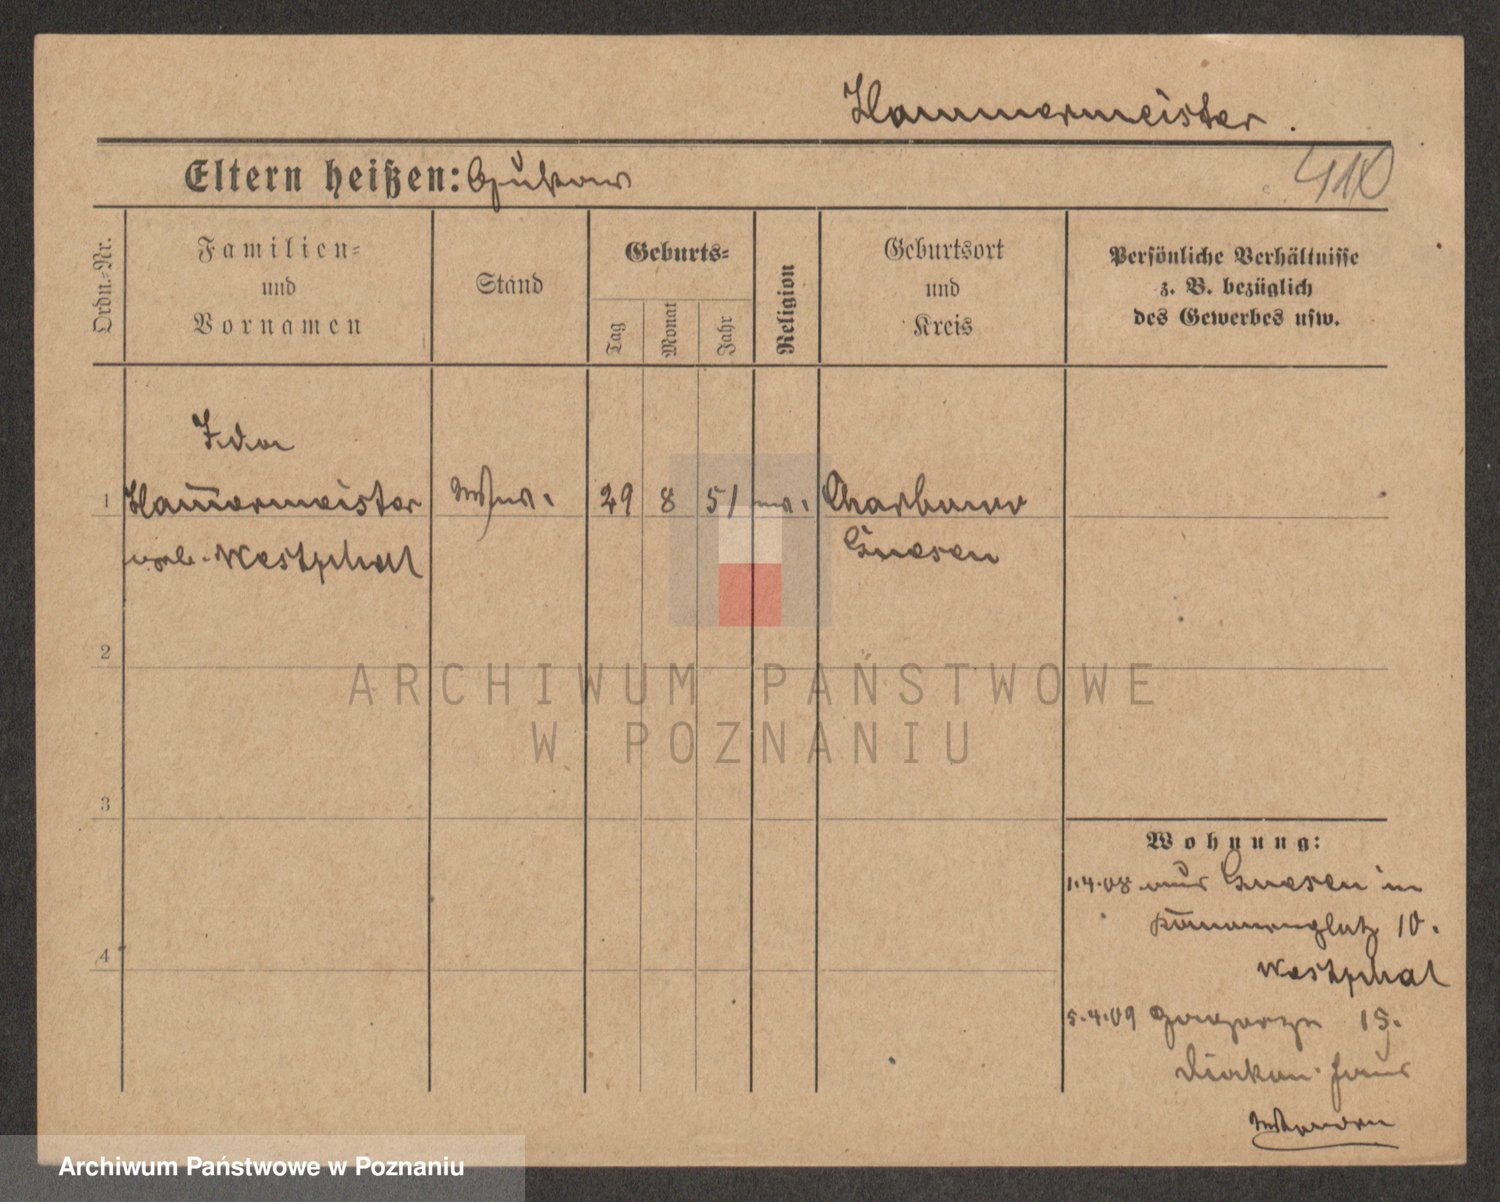 Hammermeister.
Eltern heißen:
410
Ordn.-Nr.
Familien-
und
Vornamen
Stand
Geburts-
Tag
Monat
Jahr
Religion
Geburtsort
und
Kreis
Persönliche Verhältnisse
z. B. bezüglich
des Gewerbes usw.
Ida
1 Ham̅ermeister Wwe. 29 8 51 ev. Charbowo
geb. Westphal Gnesen
2
3
4
Wohnung:
1.4.08 aus Gnesen in
Kanonenplatz 10.
Westphal
5.4.09 15.
Diakon. haus
ARCHIWUM PAŃSTWOWE
W POZNANIU
Archiwum Państwowe w Poznaniu